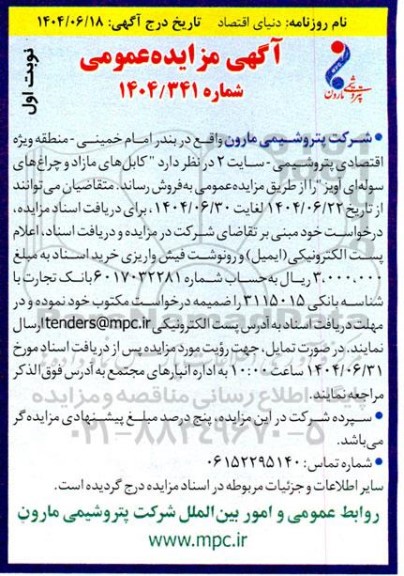 نام روزنامه: دنیای اقتصاد تاریخ درج آگهی: ۱۴۰۴/۰۶/۱۸
نوبت اول
آگهی مزایده‌عمومی
شماره ۱۴۰۴/۳۴۱
پتروشیمی مارون
• شرکت پتروشیمی مارون واقع در بندر امام خمینی - منطقه ویژه
اقتصادی پتروشیمی - سایت ۲ در نظر دارد "کابل‌های مازاد و چراغ‌های
سوله‌ای آویز" را از طریق مزایده‌عمومی به‌فروش رساند. متقاضیان می‌توانند
از تاریخ ۱۴۰۴/۰۶/۲۲ لغایت ۱۴۰۴/۰۶/۳۰، برای دریافت اسناد مزایده،
درخواست خود مبنی بر تقاضای شرکت در مزایده و دریافت اسناد، اعلام
پست الکترونیکی(ایمیل) و رونوشت فیش واریزی خرید اسناد به مبلغ
۳.۰۰۰.۰۰۰ ریال به‌حساب شماره ۶۰۱۷۰۳۲۲۸۱ بانک تجارت با
شناسه بانکی ۳۱۱۵۰۱۵ را ضمیمه درخواست مکتوب خود نموده و در
مهلت دریافت اسناد به آدرس پست الکترونیکی tenders@mpc.ir ارسال
نمایند. در صورت تمایل، جهت رؤیت مورد مزایده پس از دریافت اسناد مورخ
۱۴۰۴/۰۶/۳۱ ساعت ۱۰:۰۰ به اداره انبارهای مجتمع به آدرس فوق‌الذکر
مراجعه نمایند.
• سپرده شرکت در این مزایده، پنج درصد مبلغ پیشنهادی مزایده‌گر
می‌باشد.
• شماره تماس: ۰۶۱۵۲۲۹۵۱۴۰
سایر اطلاعات و جزئیات مربوطه در اسناد مزایده درج گردیده است.
روابط عمومی و امور بین‌الملل شرکت پتروشیمی مارون
www.mpc.ir
پایگاه اطلاع رسانی مناقصه و مزایده
۰۲۱-۸۸۳۴۹۶۷۰-۵